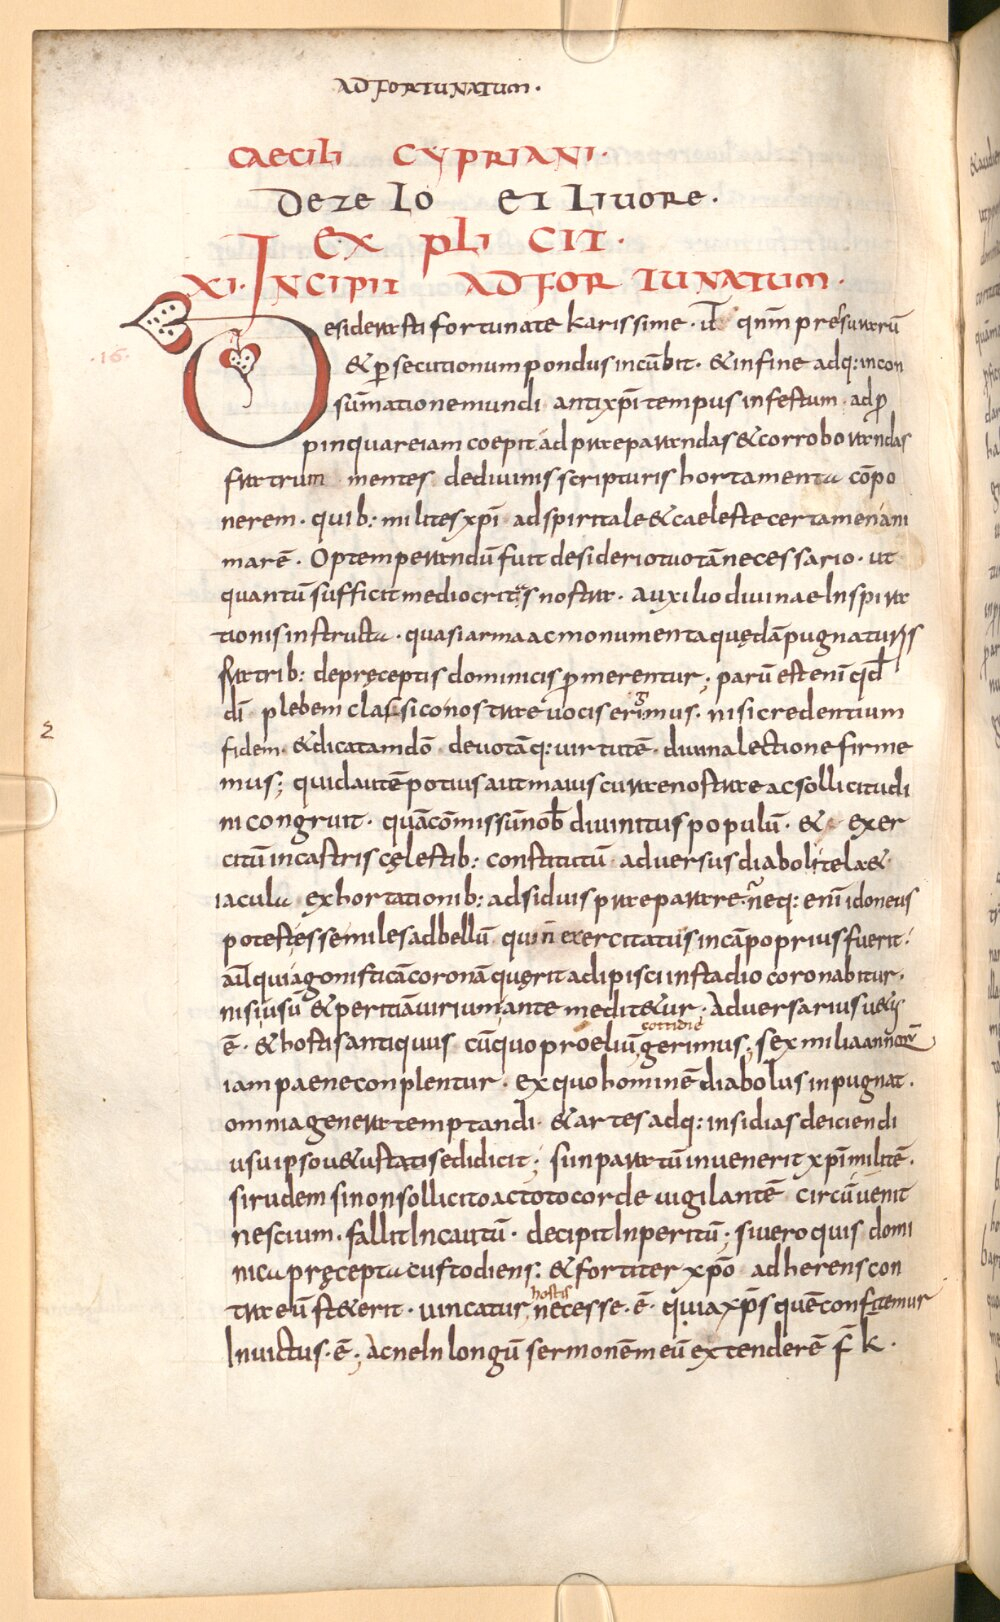 AD FORTUNATUM·
CAECILI CYPRIANI·
DE ZELO ET LIVORE·
EXPLICIT·
XI· INCIPIT AD FORTUNATUM·
Desiderasti fortunate karissime· ut qnm̄ presurarū
·16·
& p̄secutionum pondus incūbit· & in fine adq: in con
sūmatione mundi antixp̄i tempus infestum adp̄
pinquare iam coepit ad praeparandas & corroborandas
fratrum mentes de diuinis scripturis hortamenta cōpo
nerem· quib: milites xp̄i ad spiritale & caeleste certamen ani
marē· Optemperandū fuit desiderio tuo tā necessario· ut
quantū sufficit mediocritas nostra· auxilio diuinae Inspira
tionis instructa· quasi arma ac monumenta quędā pugnaturis
fratrib: de pręceptis dominicis p̄merentur; parū est enī qđ
dī plebem classico nostrae uocis erigimus· nisi credentium
2
fidem· & dicatam dō deuotāq: uirtutē· diuina lectione firme
mus; quid autē potius aut maius curae nostrae ac sollicitudi
ni congruit· quā cōmissū nob̄ diuinitus populū· & exer
citū in castris cęlestib: constitutū aduersus diaboli tela &
iacula exhortationib: adsiduis praeparare· neq: enī idoneus
potest esse miles ad bellū qui n̄ exercitatus in cāpo prius fuerit·
aut qui agonisticā coronā quęrit adipisci in stadio coronabitur·
nisi usū & peritiā uirium ante medit&ur· Aduersarius u&us
ē· & hostis antiquus cū quo proeliū cottidie gerimus; sex milia annorū
iam paene conplentur· ex quo hominē diabolus inpugnat·
omnia genera temptandi· & artes adq: insidias deiciendi
usu ipso u&ustatis edidicit; si inparatū inuenerit xp̄i militē·
si rudem si non sollicito ac toto corde uigilantē circūuenit
nescium· fallit Incautū· decipit Inperitū· si uero quis domi
nica pręcepta custodiens: & fortiter xp̄o adherens con
tra eū st&erit· uincatur hostis necesse· ē· quia xp̄s quē confitemur
Inuictus· ē; Ac ne In longū sermonē meū extenderē f̄ k̄·